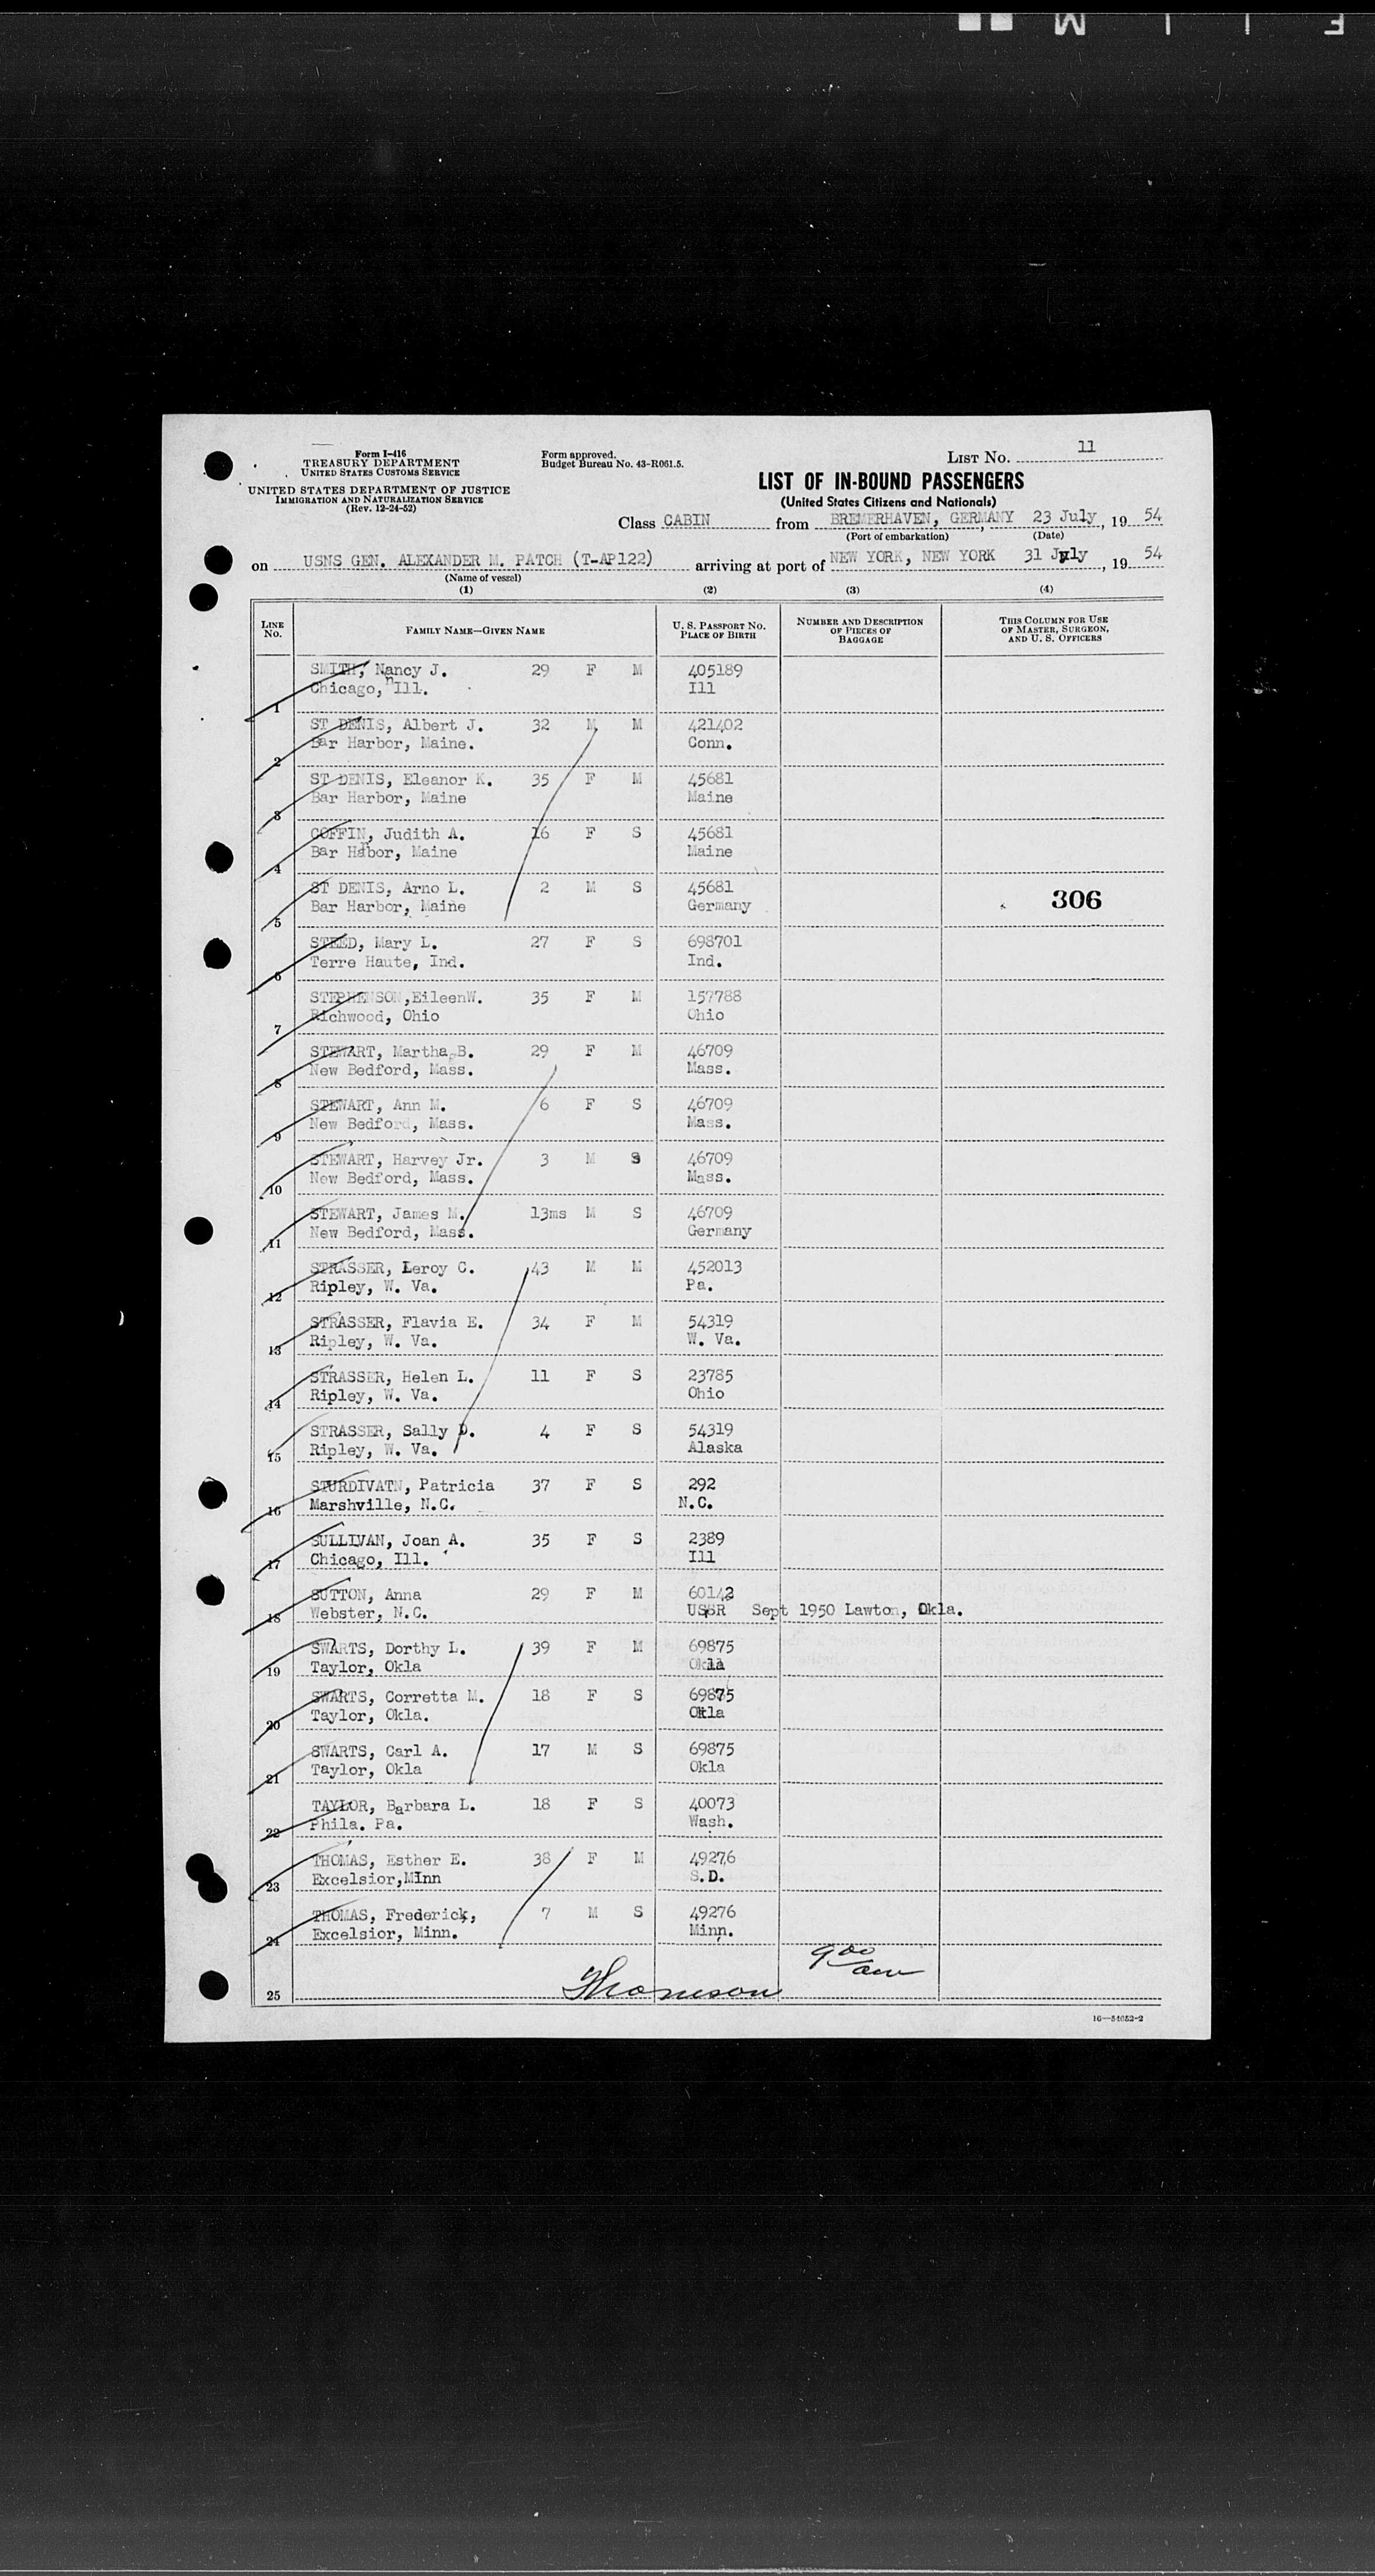 Form I-416
TREASURY DEPARTMENT
UNITED STATES CUSTOMS SERVICE
UNITED STATES DEPARTMENT OF JUSTICE
IMMIGRATION AND NATURALIZATION SERVICE
(Rev. 12-24-52)
Form approved.
Budget Bureau No. 43-R061.5.
LIST NO. 11
LIST OF IN-BOUND PASSENGERS
(United States Citizens and Nationals)
Class CABIN from BREMERHAVEN, GERMANY 23 July, 19 54
(Port of embarkation) (Date)
on USNS GEN. ALEXANDER M. PATCH (T-AP122) arriving at port of NEW YORK, NEW YORK 31 July, 19 54
(Name of vessel)
(1) (2) (3) (4)
LINE NO. FAMILY NAME—GIVEN NAME U. S. PASSPORT NO. PLACE OF BIRTH NUMBER AND DESCRIPTION OF PIECES OF BAGGAGE THIS COLUMN FOR USE OF MASTER, SURGEON, AND U. S. OFFICERS
SMITH, Nancy J. 29 F M 405189
1 Chicago, Ill. Ill
ST DENIS, Albert J. 32 M M 421402
2 Bar Harbor, Maine. Conn.
ST DENIS, Eleanor K. 35 F M 45681
3 Bar Harbor, Maine Maine
COFFIN, Judith A. 16 F S 45681
4 Bar Harbor, Maine Maine
ST DENIS, Arno L. 2 M S 45681
5 Bar Harbor, Maine Germany 306
STEED, Mary L. 27 F S 698701
6 Terre Haute, Ind. Ind.
STEPHENSON,EileenW. 35 F M 157788
7 Richwood, Ohio Ohio
STEWART, Martha B. 29 F M 46709
8 New Bedford, Mass. Mass.
STEWART, Ann M. 6 F S 46709
9 New Bedford, Mass. Mass.
STEWART, Harvey Jr. 3 M S 46709
10 New Bedford, Mass. Mass.
STEWART, James M. 13ms M S 46709
11 New Bedford, Mass. Germany
STRASSER, Leroy C. 43 M M 452013
12 Ripley, W. Va. Pa.
STRASSER, Flavia E. 34 F M 54319
13 Ripley, W. Va. W. Va.
STRASSER, Helen L. 11 F S 23785
14 Ripley, W. Va. Ohio
STRASSER, Sally D. 4 F S 54319
15 Ripley, W. Va. Alaska
STURDIVATN, Patricia 37 F S 292
16 Marshville, N.C. N.C.
SULLIVAN, Joan A. 35 F S 2389
17 Chicago, Ill. Ill
SUTTON, Anna 29 F M 60142
18 Webster, N.C. USSR Sept 1950 Lawton, Okla.
SWARTS, Dorthy L. 39 F M 69875
19 Taylor, Okla Okla
SWARTS, Corretta M. 18 F S 69875
20 Taylor, Okla. Okla
SWARTS, Carl A. 17 M S 69875
21 Taylor, Okla Okla
TAYLOR, Barbara L. 18 F S 40073
22 Phila. Pa. Wash.
THOMAS, Esther E. 38 F M 49276
23 Excelsior,MInn S.D.
THOMAS, Frederick, 7 M S 49276
24 Excelsior, Minn. Minn.
900 am
25 Thomson
16—54652-2